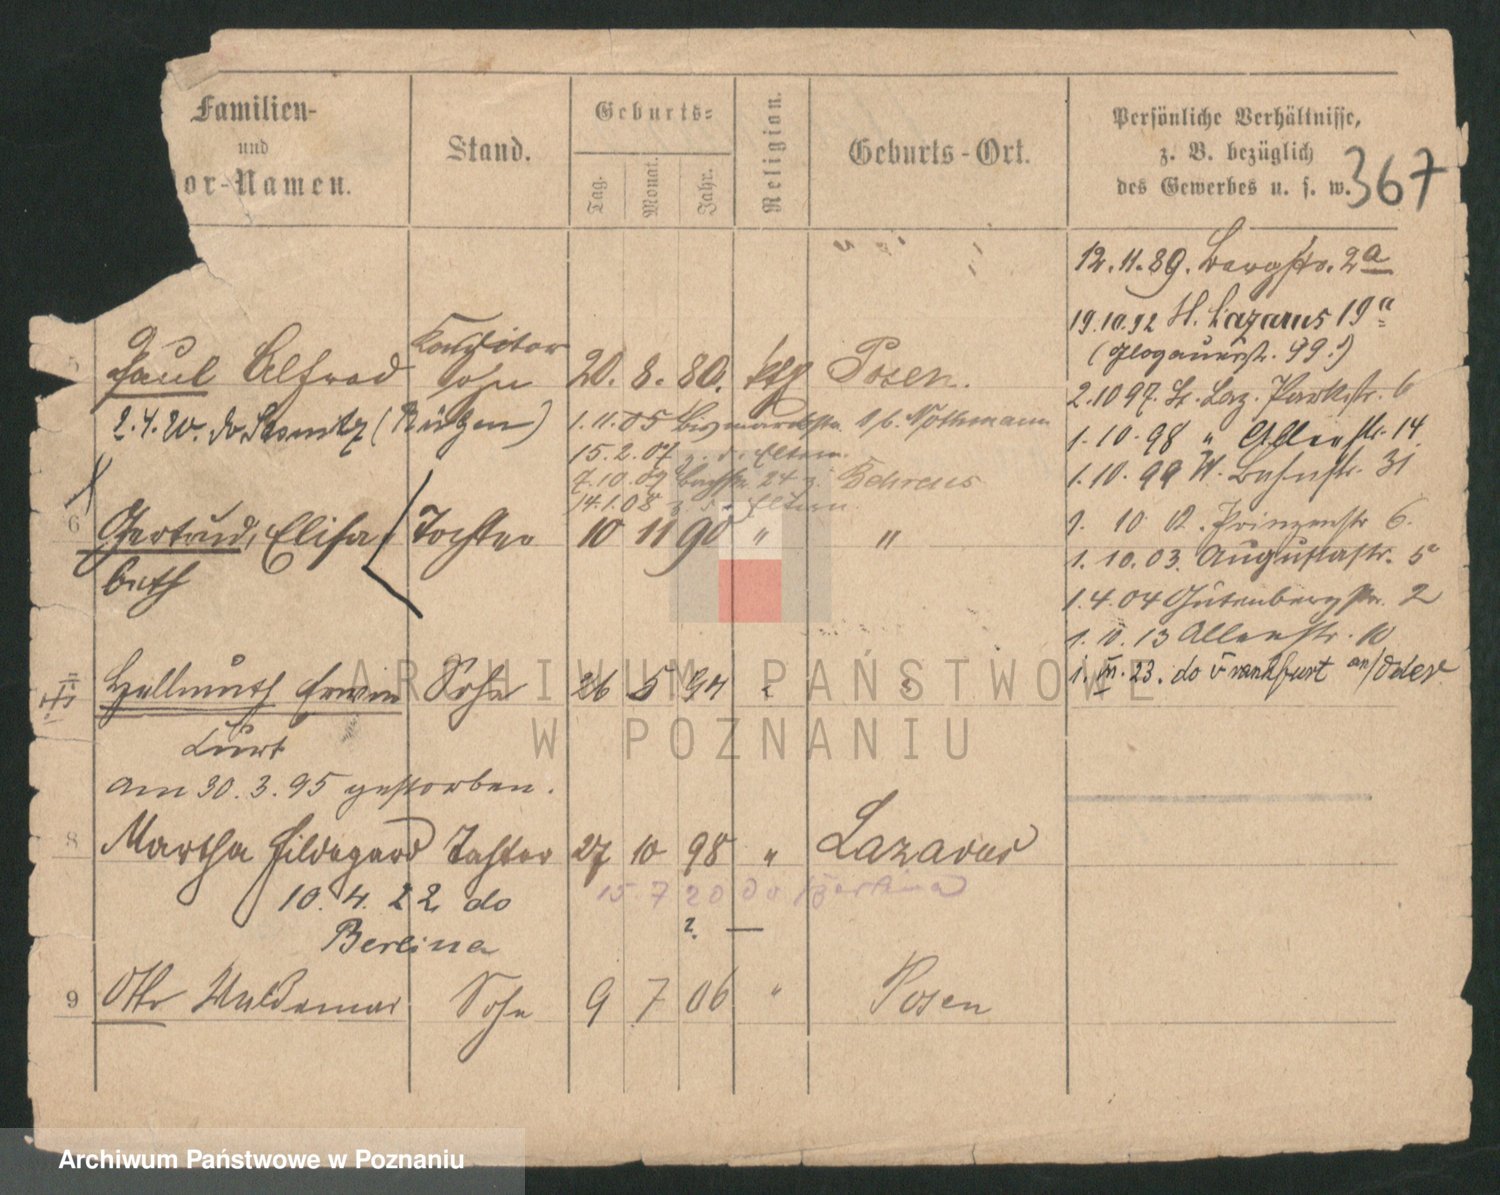 Familien-
und
or-Namen.
Stand.
Geburts-
Tag.
Monat.
Jahr.
Religion.
Geburts-Ort.
Persönliche Verhältnisse,
z. B. bezüglich
des Gewerbes u. s. w.
367
12.11.89. Bergstr. 2a
19.10.92 St. Lazarus 19a
(Glogauerstr. 99.)
2.10 97. St. Laz. Parkstr. 6
1.10.98 " Allerstr. 14
1.10.99 W. Bahnstr. 31
1. 10 02. Prinzenstr 6.
1.10.03. Augustastr. 5
1.4.04 Gutenbergstr. 2
1. 11. 13 Allerstr. 10
1. III. 23. do Frankfurt an/Oder
5 Paul Alfred
Konditor
Sohn 20. 8. 80. kth Posen.
2.4.20. do (Rügen)
1.11.05 Bismarckstr. b. Nothmann
15.2.07 z. d. Eltern.
7.10.07 24 z. Behrens
14.1.08 z. d. Eltern
6 Gertrud, Elisa-
beth
Tochter 10 11 90 " "
Hellmuth Erwin Sohn 26 5 94 " "
Kurt
am 30.3.95 gestorben.
8 Martha Hildegard Tochter 27 10 98 " Lazarus
15.7 20 do Berlina
10.4.22 do
Berlina
2. —
9 Otto Waldemar Sohn 9 7 06 " Posen
ARCHIWUM PAŃSTWOWE
W POZNANIU
Archiwum Państwowe w Poznaniu